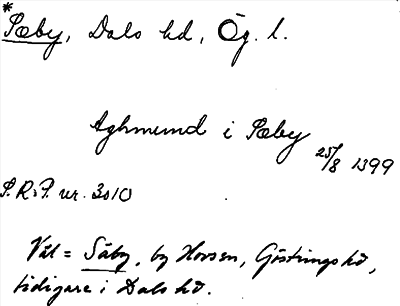 *
Sæby, Dals hd, Ög. l.
Aghmund i Sæby
25/8 1399
S.R.P. nr. 3010
Väl = Säby, by Hovsen, Göstrings hd,
tidigare i Dals hd.